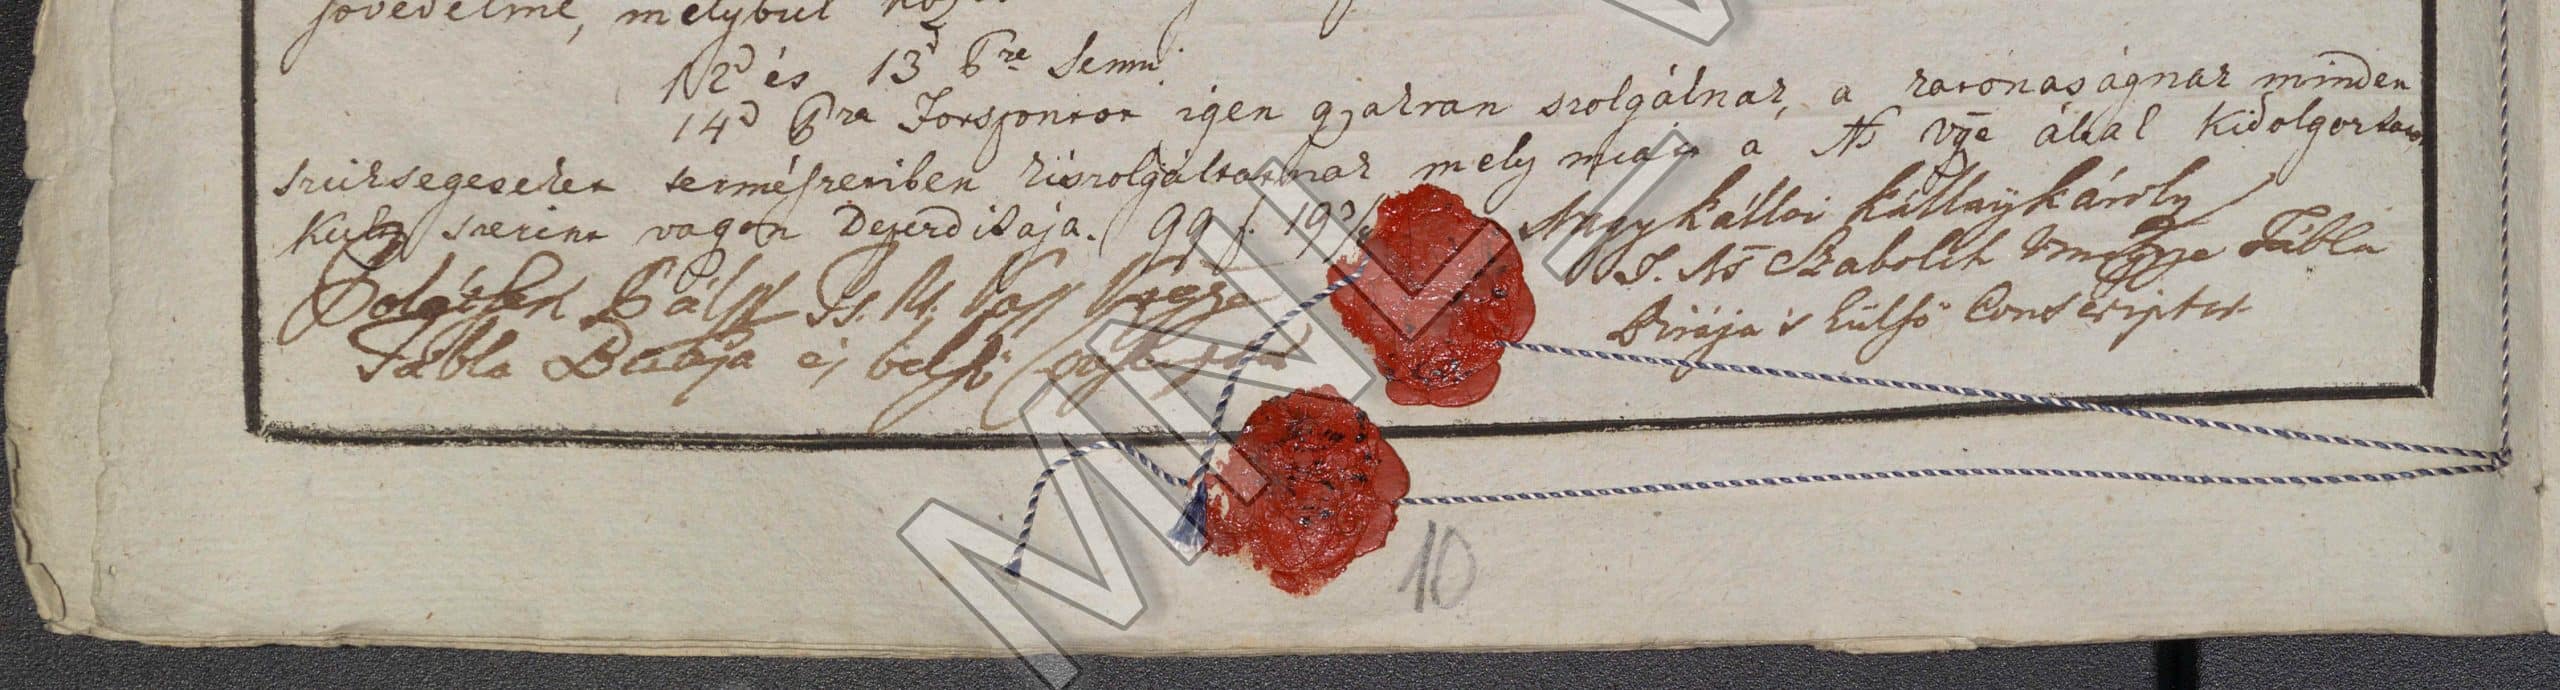 jövedelme, melybül
12d és 13d bre Semmi.
14d bra Forspontot igen gyakran szolgálnak, a katonaságnak minden
szükségeseket természetiben kiszolgáltatnak mely miat a Ns Vgye által Kidolgozta
Kults szerint vagyon Deperditája. 99 f. 19
Nagy Kállói Kállay Károly
T. Ns Szabolch Vmegye Tábla
Birája 's külső Conscriptor
Pálff Ts. N. Vas Vegye
Tábla Birája és belső
10
MNL